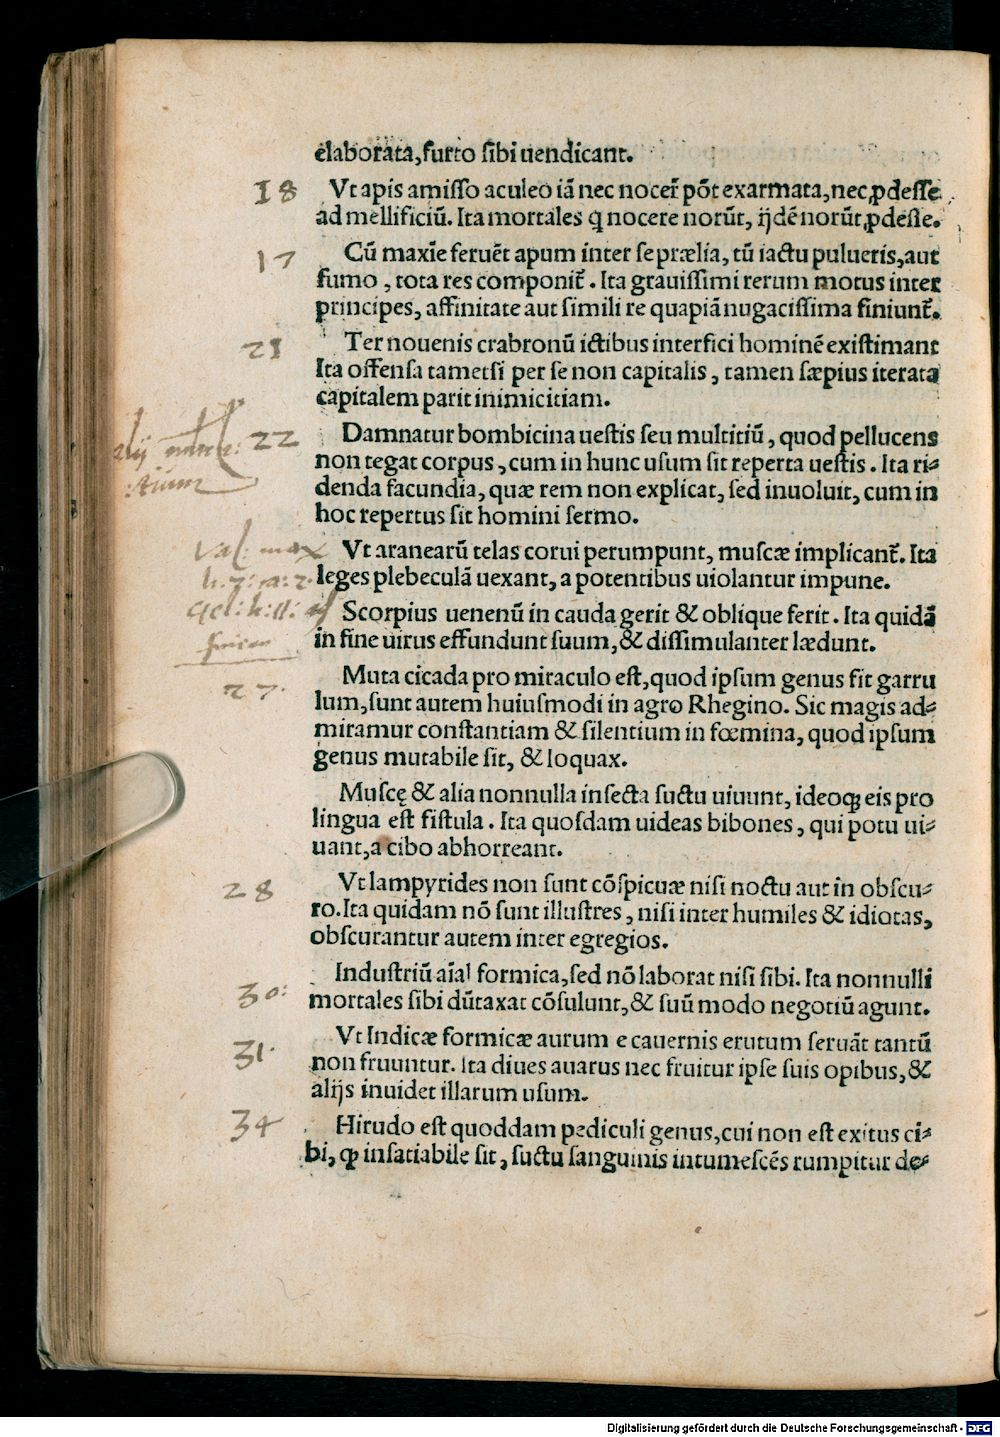 elaborata, furto sibi uendicant.
18 Vt apis amisso aculeo iā nec nocer̃ põt exarmata, nec ꝓdesse
ad mellificiũ. Ita mortales q̃ nocere norũt, ijdē norũt ꝓdesse.
17 Cũ maxīe feruẽt apum inter se prælia, tũ iactu pulueris, aut
fumo, tota res componit̃. Ita grauissimi rerum motus inter
principes, affinitate aut simili re quapiā nugacissima finiunt̃.
21 Ter nouenis crabronũ ictibus interfici hominẽ existimant
Ita offensa tametsi per se non capitalis, tamen sæpius iterata
capitalem parit inimicitiam.
22 Damnatur bombicina uestis seu multitiũ, quod pellucens
non tegat corpus, cum in hunc usum sit reperta uestis. Ita ri-
denda facundia, quæ rem non explicat, sed inuoluit, cum in
hoc repertus sit homini sermo.
Val: max
Vt aranearũ telas corui perumpunt, muscæ implicant̃. Ita
li: 7: ca: 2.
leges plebeculā uexant, a potentibus uiolantur impune.
Scorpius uenenũ in cauda gerit & oblique ferit. Ita quidā
in fine uirus effundunt suum, & dissimulanter lædunt.
27. Muta cicada pro miraculo est, quod ipsum genus sit garru
lum, sunt autem huiusmodi in agro Rhegino. Sic magis ad-
miramur constantiam & silentium in fœmina, quod ipsum
genus mutabile sit, & loquax.
Muscę & alia nonnulla insecta suctu uiuunt, ideoꝙ eis pro
lingua est fistula. Ita quosdam uideas bibones, qui potu ui-
uant, a cibo abhorreant.
28 Vt lampyrides non sunt cōspicuæ nisi noctu aut in obscu-
ro. Ita quidam nō sunt illustres, nisi inter humiles & idiotas,
obscurantur autem inter egregios.
30: Industriũ aīal formica, sed nō laborat nisi sibi. Ita nonnulli
mortales sibi dũtaxat cōsulunt, & suũ modo negotiũ agunt.
31. Vt Indicæ formicæ aurum e cauernis erutum seruāt tantũ
non fruuntur. Ita diues auarus nec fruitur ipse suis opibus, &
alijs inuidet illarum usum.
34 Hirudo est quoddam pediculi genus, cui non est exitus ci-
bi, ꝙ insatiabile sit, suctu sanguinis intumescẽs rumpitur de-
Digitalisierung gefördert durch die Deutsche Forschungsgemeinschaft - DFG